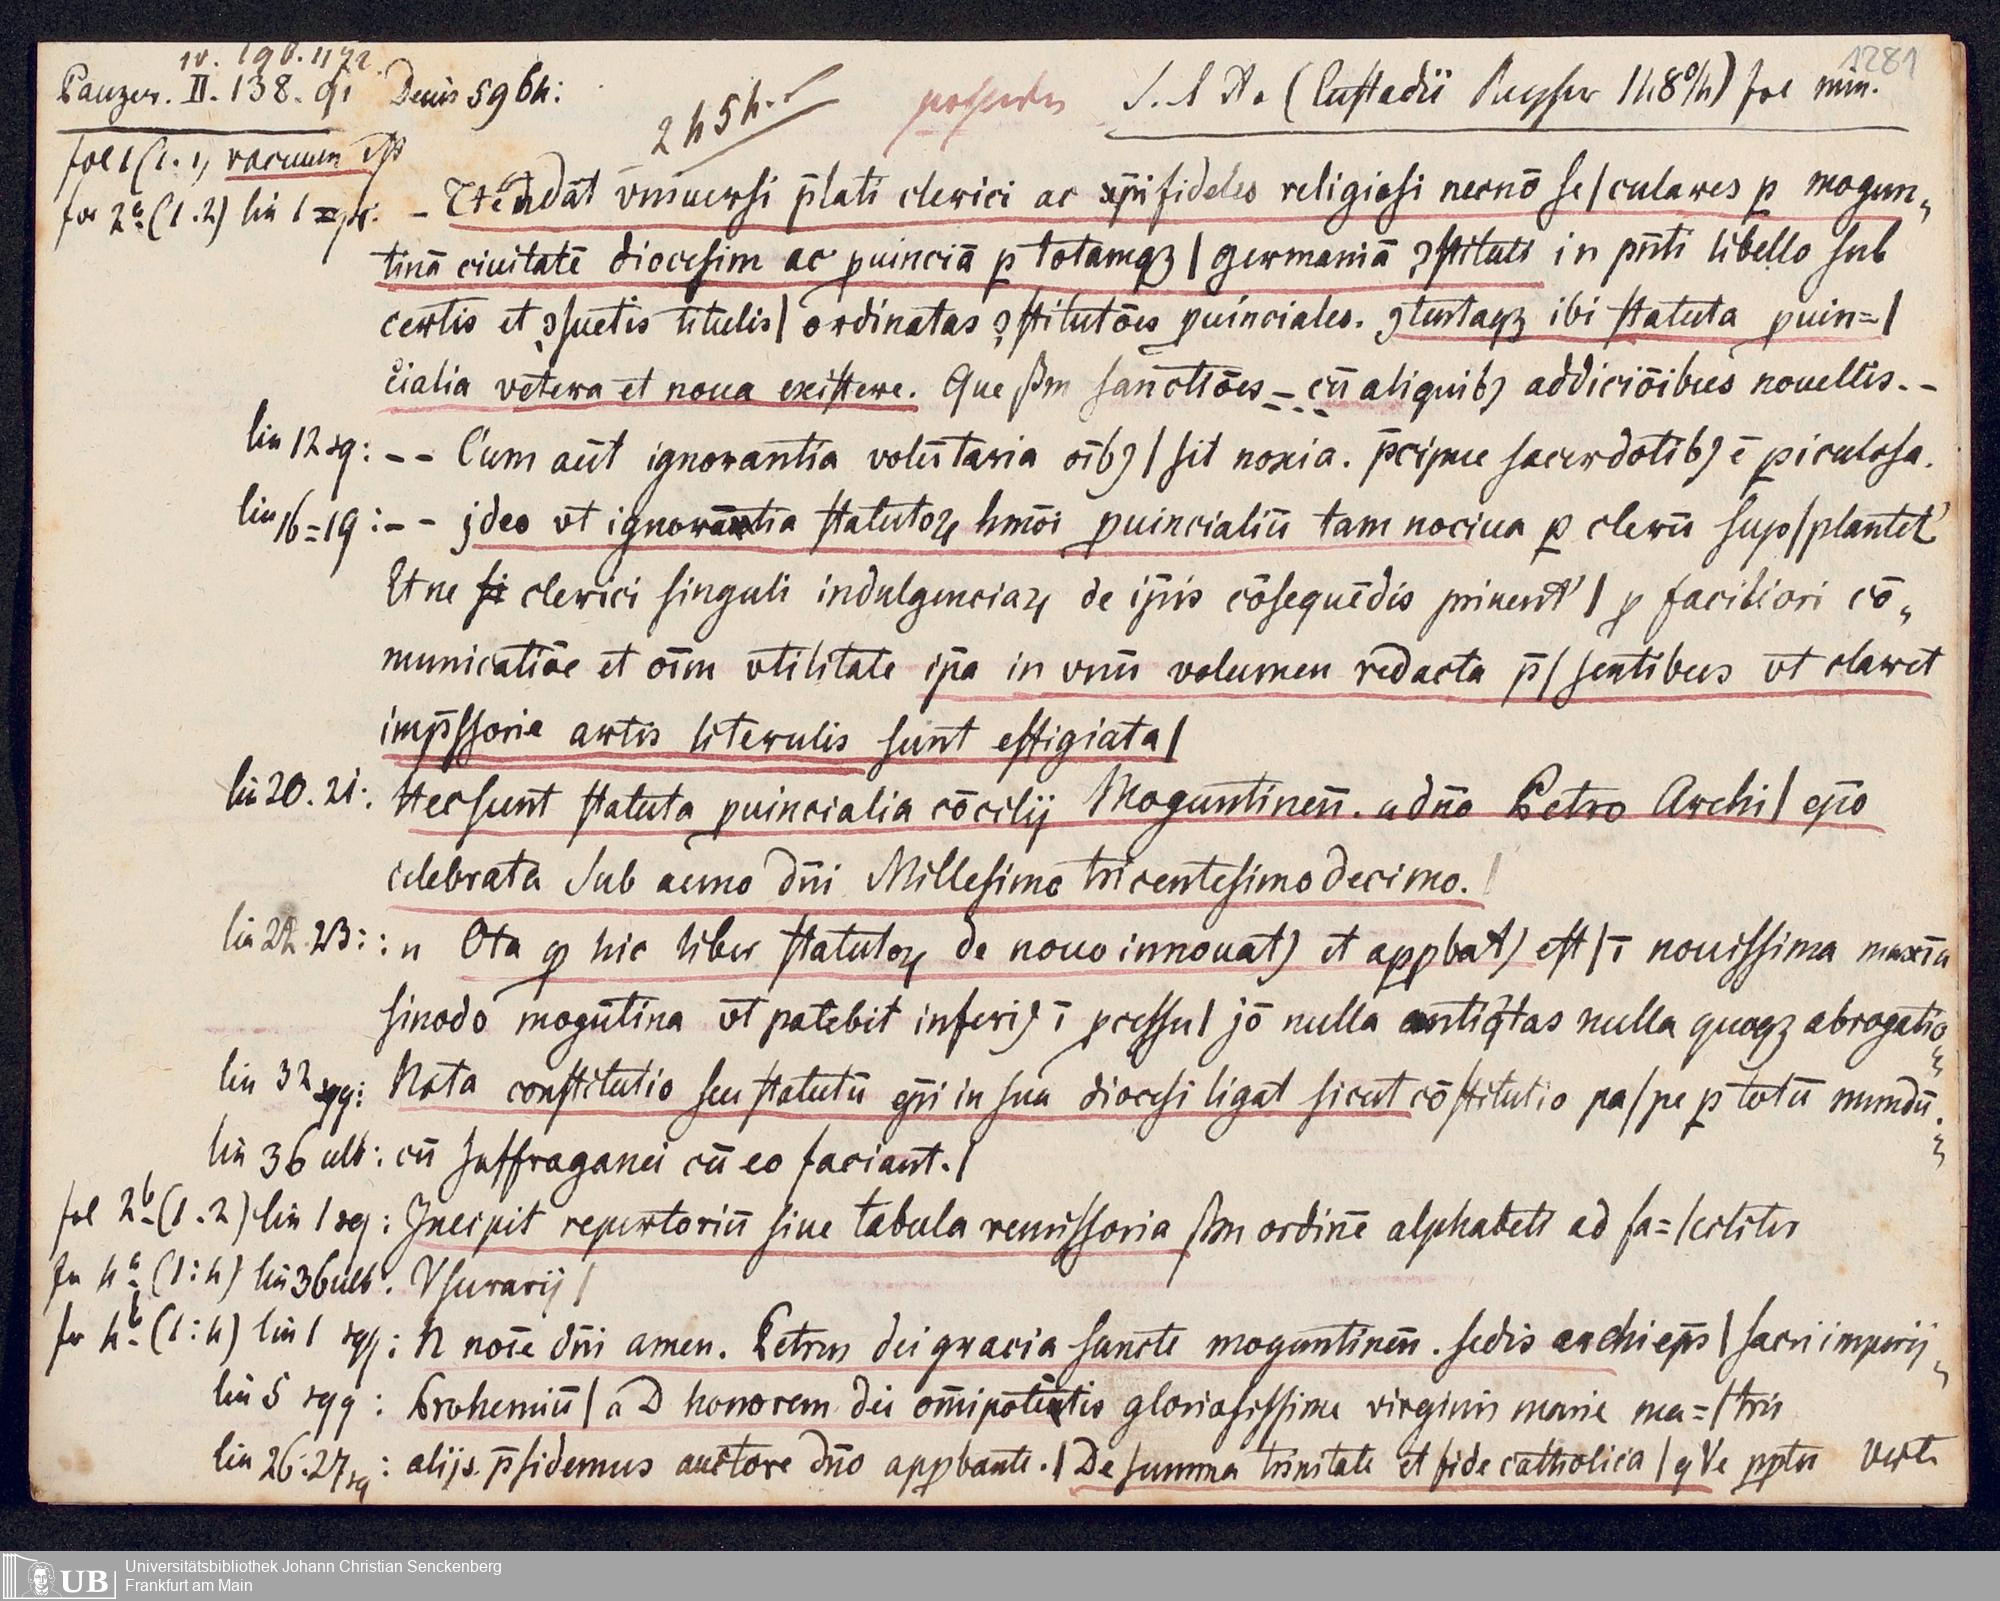 IV. 190. 1172.
Panzer. II. 138. 91 Denis 5964: 2454. possedes S. l. A. (Eustadii Reyser 148%4) fol min. 1281
fol 1 (1.1) vacuum est
fol 2a (1.2) lin 1 sqs: – Ttēndāt vniuersi p̄lati clerici ac xp̄ifideles religiosi necnō se/culares p mogun„
tinā ciuitatē diocesim ac puinciā p totamqz / germaniā ꝯstituti in pn̄ti libello sub
certis et ꝯsuetis titulis / ordinatas ꝯstitutōes puinciales. ꝯtentaqz ibi statuta puin= /
cialia vetera et noua existere. Que ßm sanctiōes – cū aliquibꝫ addiciōibus nouellis. –
lin 12 sq: – – Cum aūt ignorantia volūtaria oībꝫ / sit noxia. p̄cipue sacerdotibꝫ ē piculosa.
lin 16=19: – – jdeo vt ignorantia statutoꝝ hmōi puincialiū tam nociua p clerū sup/plantet'
Et ne clerici singuli indulgenciaꝝ de ip̄is cōsequēdis priuent' / p faciliori cō„
municatiōe et oīm vtilitate ip̄a in vnū volumen redacta p̄/sentibus vt claret
imp̄ssorie artis literulis sunt effigiata /
lin 20. 21: Hec sunt statuta puincialia cōcilij Moguntinen̄. a dn̄o Petro Archi / ep̄o
celebrata Sub anno dn̄i Millesimo tricentesimo decimo. /
lin 22. 23: : n Ota ꝙ hic liber statutoꝝ de nouo innouatꝫ et appbatꝫ est / ī nouissima maxīa
sinodo mogūtina vt patebit inferiꝫ ī pcessu / jō nulla antiq̄tas nulla quoqz abrogatio
lin 32 sqq: Nota constitutio seu statutū ep̄i in sua diocesi ligat sicut cōstitutio pa/pe p totū mundū.
lin 36 ult: cū suffraganei cū eo faciant. /
fol 2b (1.2) lin 1 sq: Jncipit repertoriū siue tabula remissoria ßm ordinē alphabeti ad fa=/ciliter
fol 4a (1:4) lin 36 ult: Vsurarij /
fol 4b (1:4) lin 1 sqq: N noīe dn̄i amen. Petrus dei gracia sancte moguntinen̄. sedis archiep̄s / sacri imperij
lin 5 sqq: Prohemiū / a D honorem dei om̄ipotētis gloriosissime virginis marie ma=/tris
lin 26. 27 sq: alijs p̄sidemus auctore dn̄o appbante. / De summa trinitate et fide catholica / q Ve ppter verte
UB Universitätsbibliothek Johann Christian Senckenberg
Frankfurt am Main